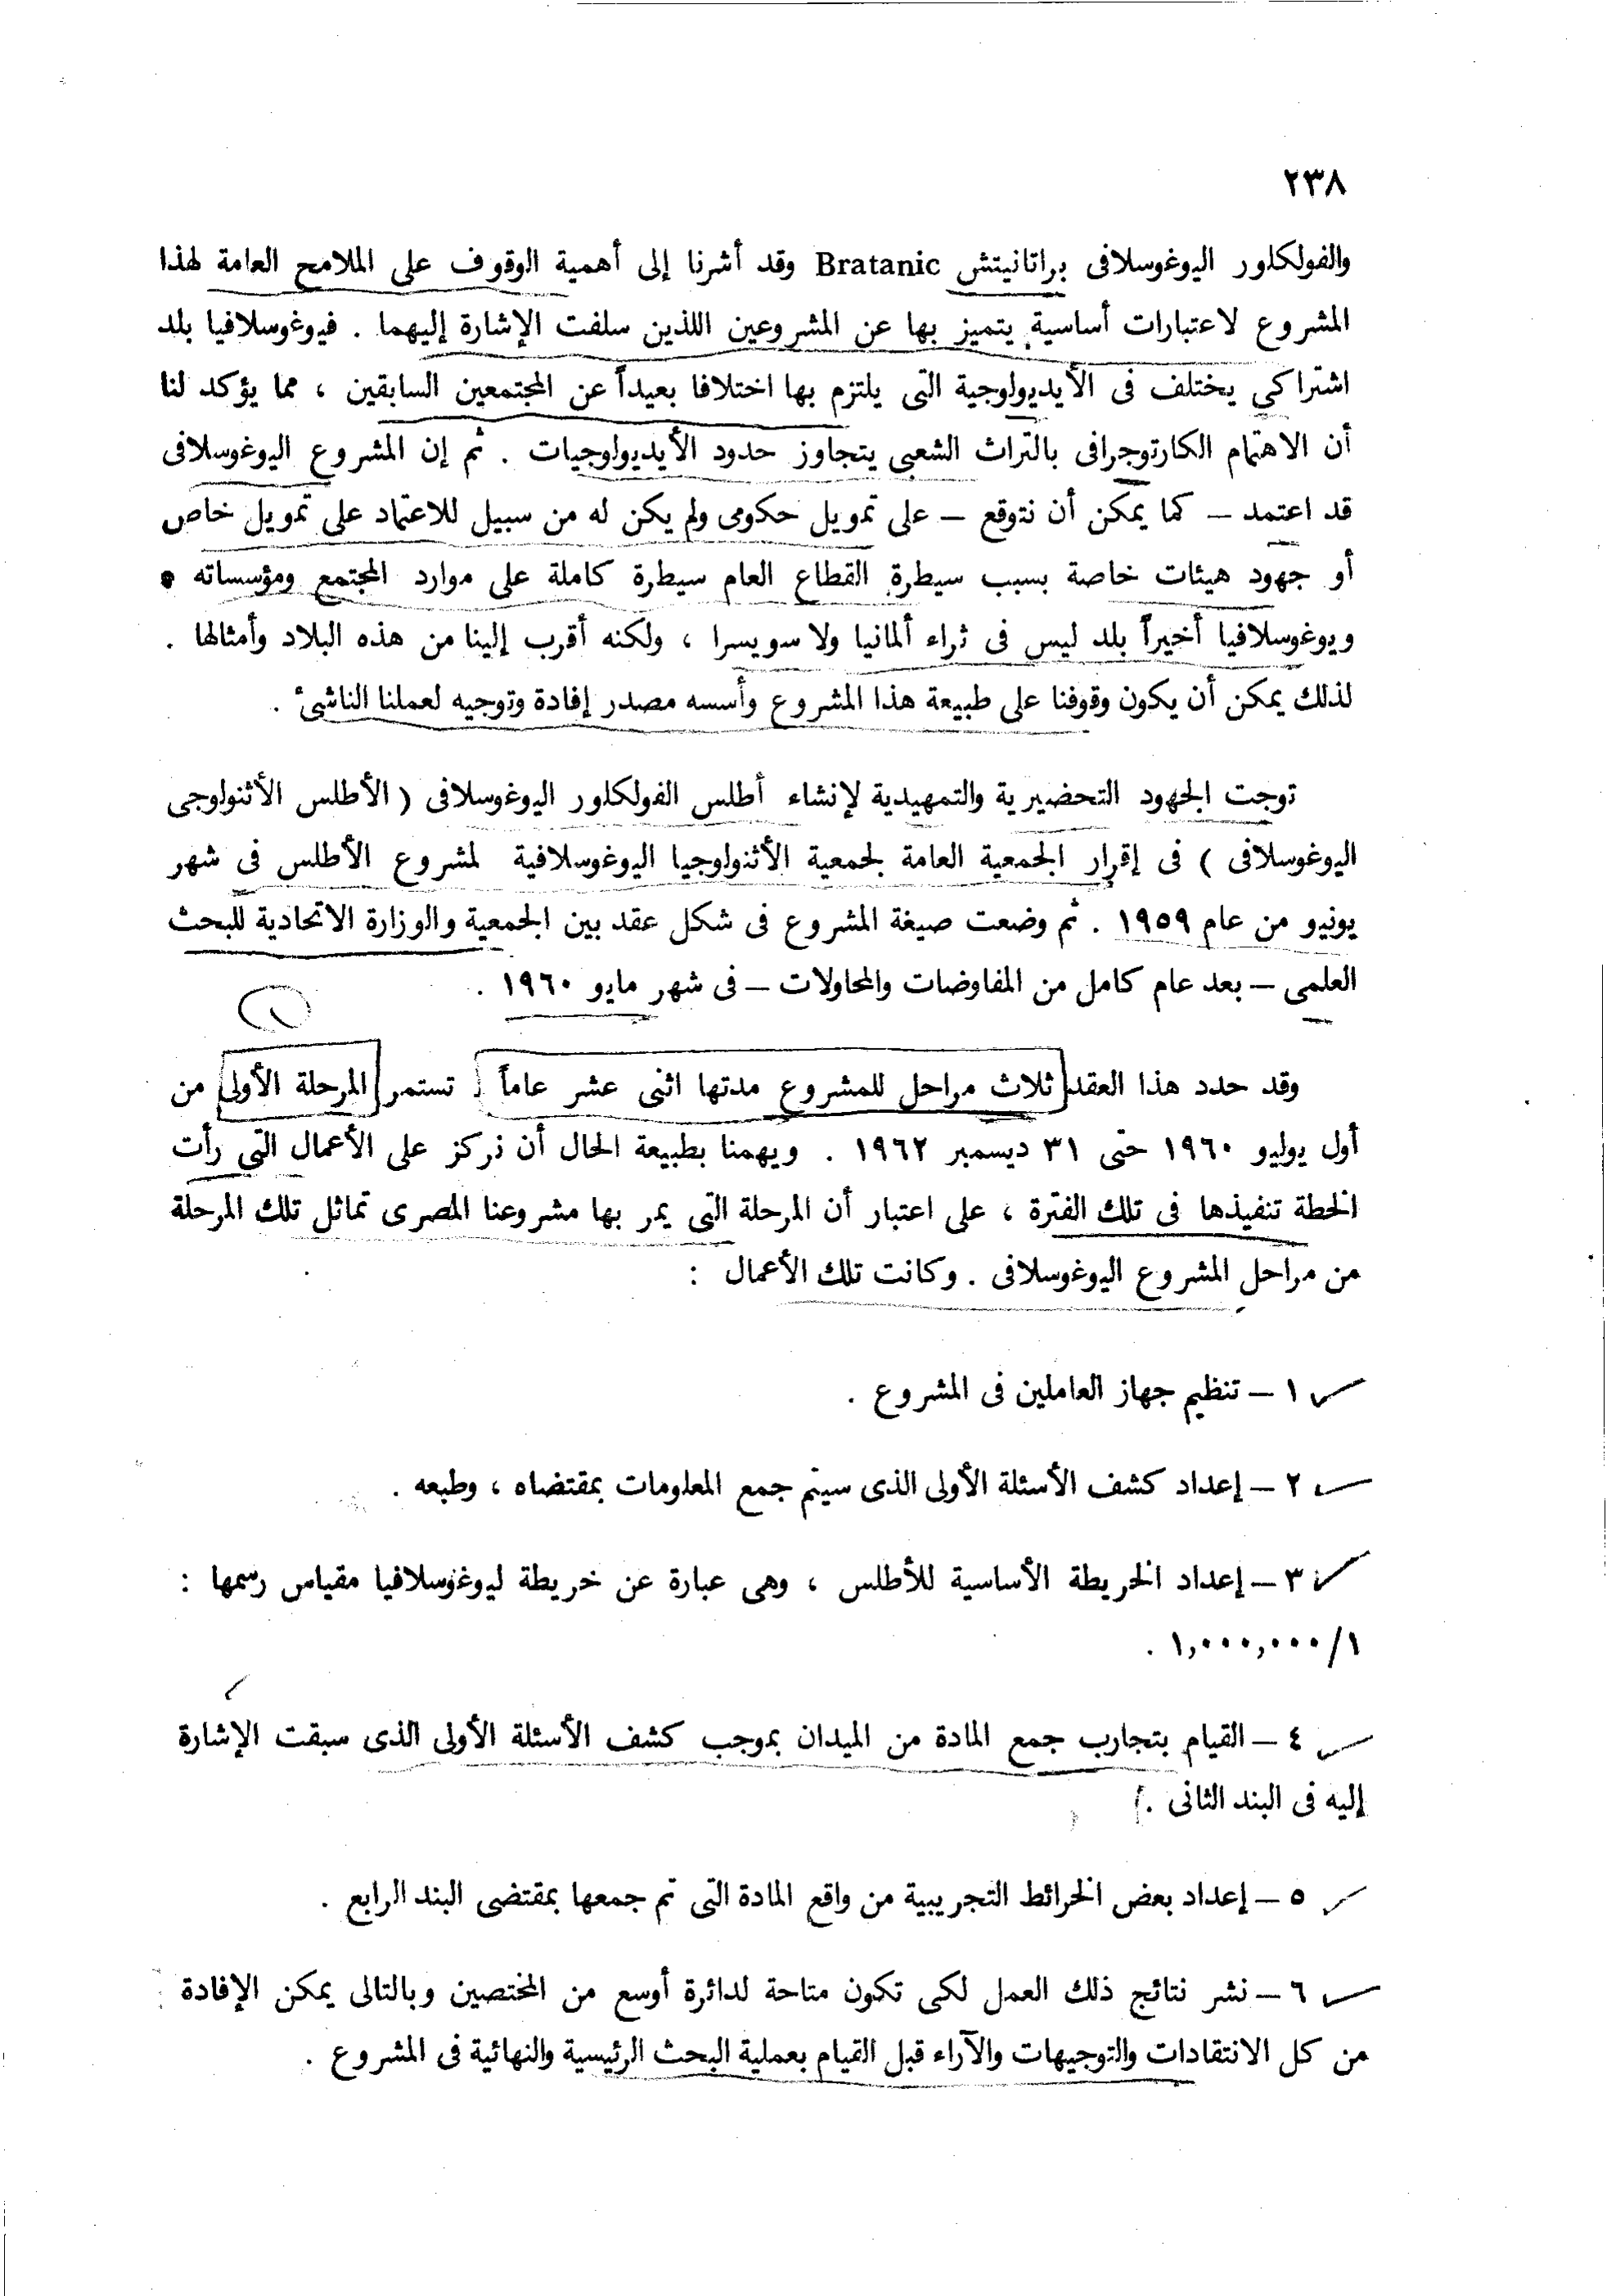 ٢٣٨
والفولكلور اليوغوسلافى براتانيتش Bratanic وقد أشرنا إلى أهمية الوقوف على الملامح العامة لهذا
المشروع لاعتبارات أساسية يتميز بها عن المشروعين اللذين سلفت الإشارة إليهما . فيوغوسلافيا بلد
اشتراكى يختلف فى الأيديولوجية التى يلتزم بها اختلافا بعيداً عن المجتمعين السابقين ، مما يؤكد لنا
أن الاهتمام الكارتوجرافى بالتراث الشعبى يتجاوز حدود الأيديولوجيات . ثم إن المشروع اليوغوسلافى
قد اعتمد – كما يمكن أن نتوقع – على تمويل حكومى ولم يكن له من سبيل للاعتماد على تمويل خاص
أو جهود هيئات خاصة بسبب سيطرة القطاع العام سيطرة كاملة على موارد المجتمع ومؤسساته .
ويوغوسلافيا أخيراً بلد ليس فى ثراء ألمانيا ولا سويسرا ، ولكنه أقرب إلينا من هذه البلاد وأمثالها .
لذلك يمكن أن يكون وقوفنا على طبيعة هذا المشروع وأسسه مصدر إفادة وتوجيه لعملنا الناشئ .
توجت الجهود التحضيرية والتمهيدية لإنشاء أطلس الفولكلور اليوغوسلافى ( الأطلس الأثنولوجى
اليوغوسلافى ) فى إقرار الجمعية العامة لجمعية الأثنولوجيا اليوغوسلافية لمشروع الأطلس فى شهر
يونيو من عام ١٩٥٩ . ثم وضعت صيغة المشروع فى شكل عقد بين الجمعية والوزارة الاتحادية للبحث
العلمى – بعد عام كامل من المفاوضات والمحاولات – فى شهر مايو ١٩٦٠ .
وقد حدد هذا العقد ثلاث مراحل للمشروع مدتها اثنى عشر عاماً . تستمر المرحلة الأولى من
أول يوليو ١٩٦٠ حتى ٣١ ديسمبر ١٩٦٢ . ويهمنا بطبيعة الحال أن نركز على الأعمال التى رأت
الخطة تنفيذها فى تلك الفترة ، على اعتبار أن المرحلة التى يمر بها مشروعنا المصرى تماثل تلك المرحلة
من مراحل المشروع اليوغوسلافى . وكانت تلك الأعمال :
١ – تنظيم جهاز العاملين فى المشروع .
٢ – إعداد كشف الأسئلة الأولى الذى سيتم جمع المعلومات بمقتضاه ، وطبعه .
٣ – إعداد الخريطة الأساسية للأطلس ، وهى عبارة عن خريطة ليوغوسلافيا مقياس رسمها :
١/١,٠٠٠,٠٠٠ .
٤ – القيام بتجارب جمع المادة من الميدان بموجب كشف الأسئلة الأولى الذى سبقت الإشارة
إليه فى البند الثانى .
٥ – إعداد بعض الخرائط التجريبية من واقع المادة التى تم جمعها بمقتضى البند الرابع .
٦ – نشر نتائج ذلك العمل لكى تكون متاحة لدائرة أوسع من المختصين وبالتالى يمكن الإفادة
من كل الانتقادات والتوجيهات والآراء قبل القيام بعملية البحث الرئيسية والنهائية فى المشروع .